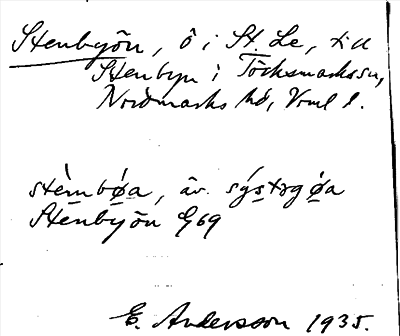 Stenbyön, ö i St. Le, till
Stenbyn i Töcksmarks sn,
Nordmarks hd, Vrml l.
stèmbøa, äv. sýstrgøa
Stenbyön E 69
E. Andersson 1935.